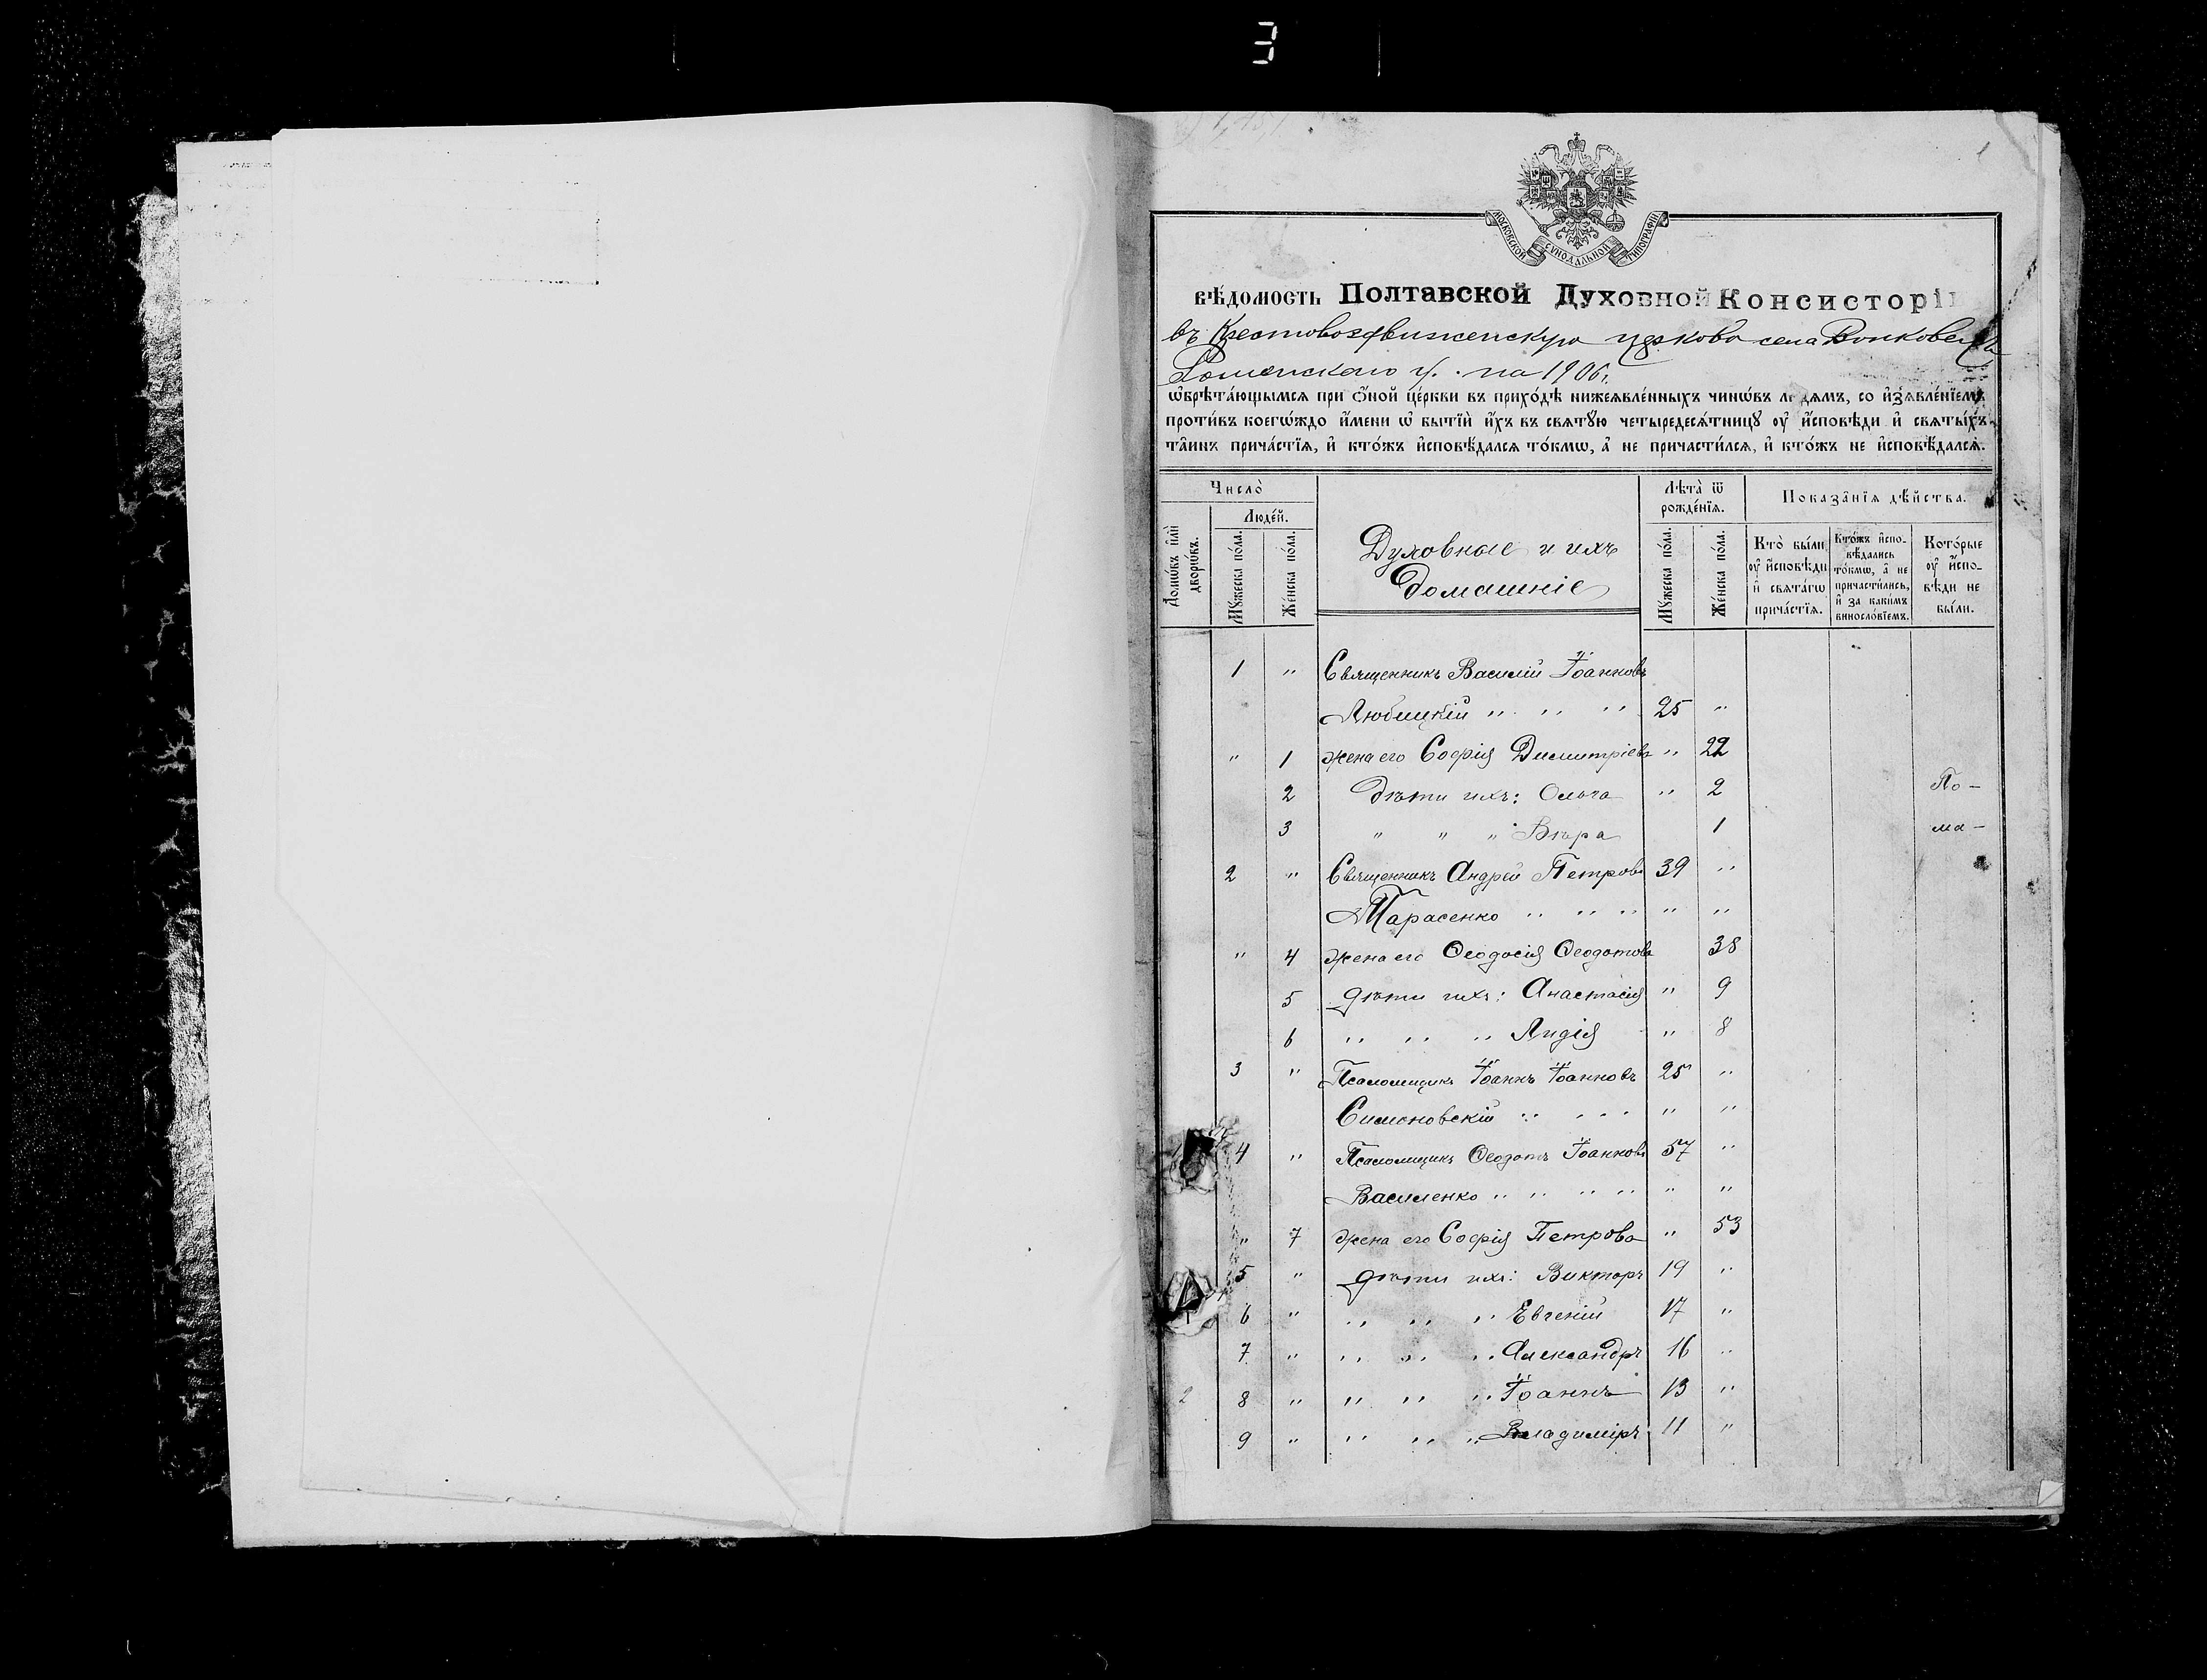 3
1
МОСКОВСКОЙ СѴНОДАЛЬНОЙ ТИПОГРАФІИ
Вѣ́домость Полтавской Духовной Консисторіи
въ Крестовоздвиженскую церковь села
Роменскаго у. на 1906 г.
ѡ҆брѣта́ющымсѧ при ѻ҆́ной це́ркви въ прихо́дѣ нижеѧвле́нныхъ чинѡ́въ лю́дѧмъ, со и҆з̾ѧвле́нїемъ
проти́въ коегѡ́ждо и҆́мени ѡ҆ бытїѝ и҆́хъ въ свѧтꙋ́ю четыредесѧ́тницꙋ ᲂу҆ и҆́сповѣди и҆ свѧты́хъ
та̑инъ прича́стїѧ, и҆ кто́жъ и҆сповѣ́далсѧ то́кмѡ, а҆ не причасти́лсѧ, и҆ кто́жъ не и҆сповѣ́далсѧ.
Число̀
Домѡ́въ и҆лѝ дворѡ́въ.
Люде́й.
Мꙋ́жеска по́ла.
Же́нска по́ла.
Духовные и ихъ
домашніе
Лѣ́та ѿ рожде́нїѧ.
Мꙋ́жеска по́ла.
Же́нска по́ла.
Показа̑нїѧ дѣ́йства.
Кто̀ бы́ли ᲂу҆ и҆́сповѣди и҆ свѧта́гѡ прича́стїѧ.
Кто́жъ и҆сповѣ́дались то́кмѡ, а҆ не причасти́лись, и҆ за каки́мъ виносло́вїемъ.
Кото́рые ᲂу҆ и҆́сповѣди не бы́ли.
1 " Священникъ Василій Іоанновъ
Любицкій " " " 25 "
" 1 жена его Софія Димитріева " 22
2 дѣти ихъ: Ольга " 2 По-
3 " " " Вѣра 1 ма-
2 " Священникъ Андрей Петровъ 39 "
Тарасенко " " " " "
" 4 жена его Ѳеодосія Ѳеодотова 38
5 дѣти ихъ: Анастасія " 9
6 " " " Лидія " 8
3 " Псаломщикъ Іоаннъ Іоанновъ 25 "
Симоновскій " " " " "
4 " Псаломщикъ Ѳеодотъ Іоанновъ 57 "
Василенко " " " " " "
" 7 жена его Софія Петрова " 53
5 " дѣти ихъ: Викторъ 19 "
6 " " " " Евгеній 17 "
7 " " " " Александръ 16 "
2 8 " " " " Іоаннъ 13 "
9 " " " " Владиміръ 11 "